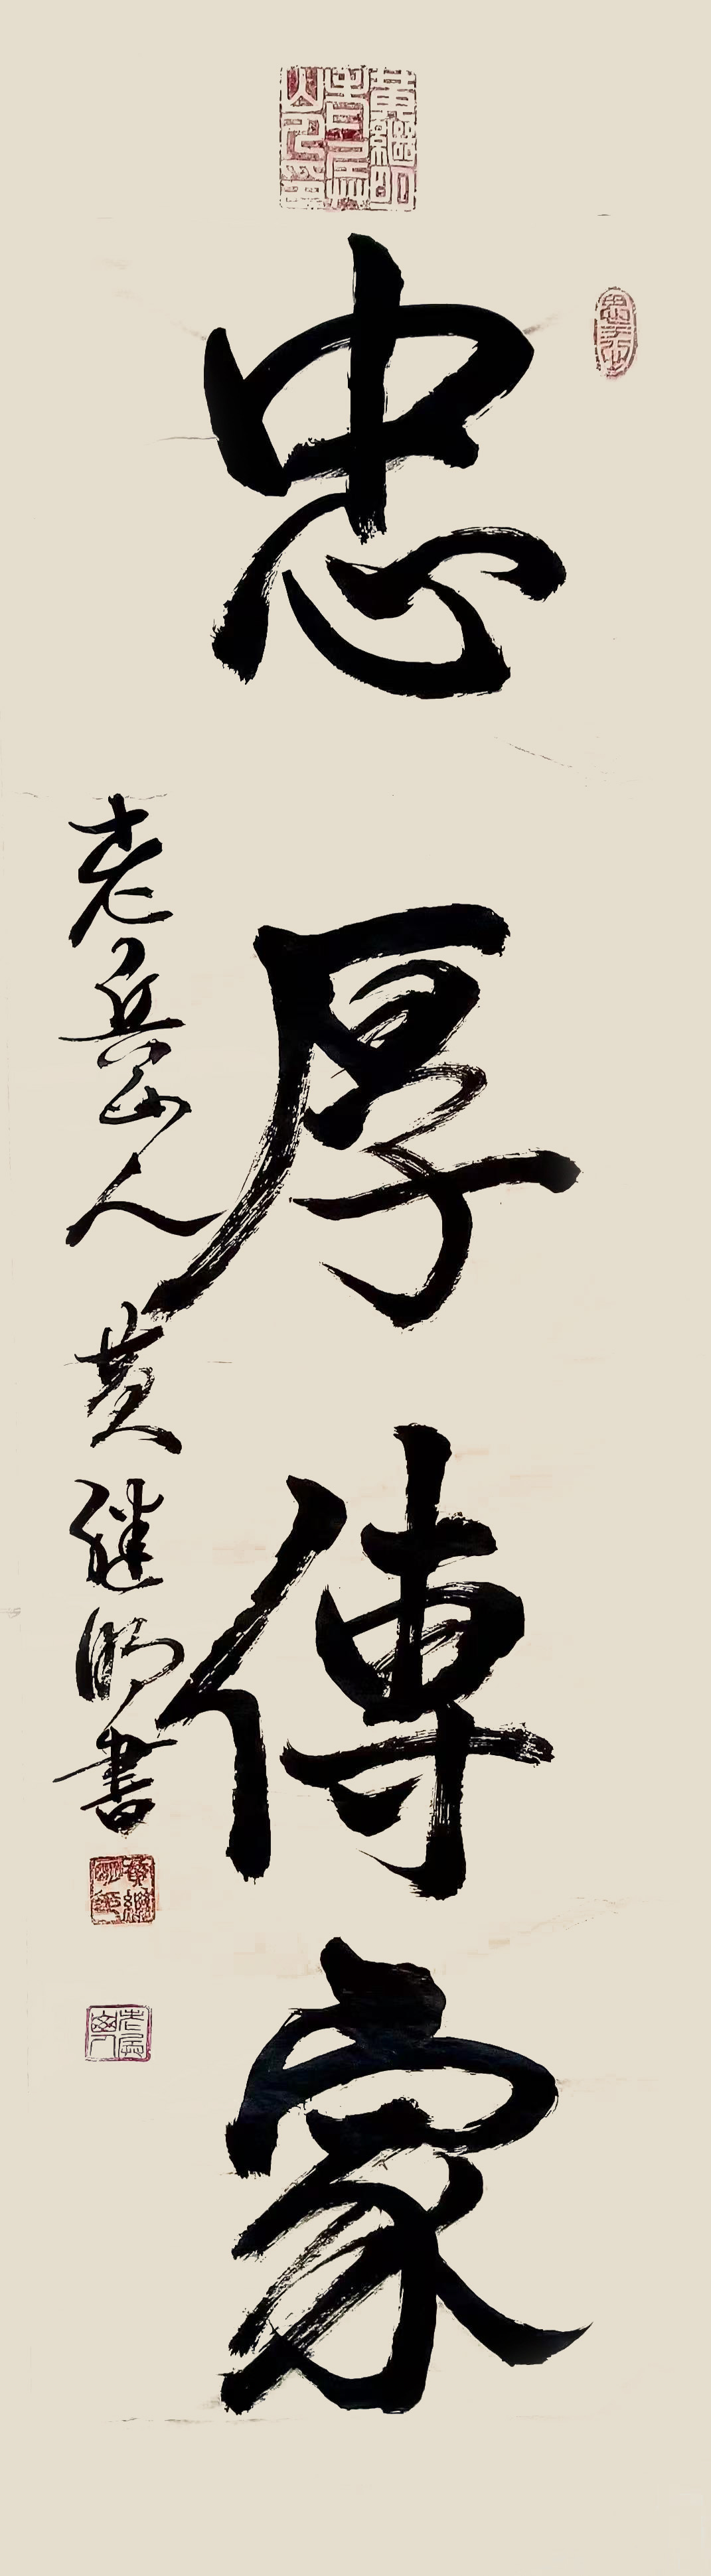 忠厚傳家
老兵山人黄继明書